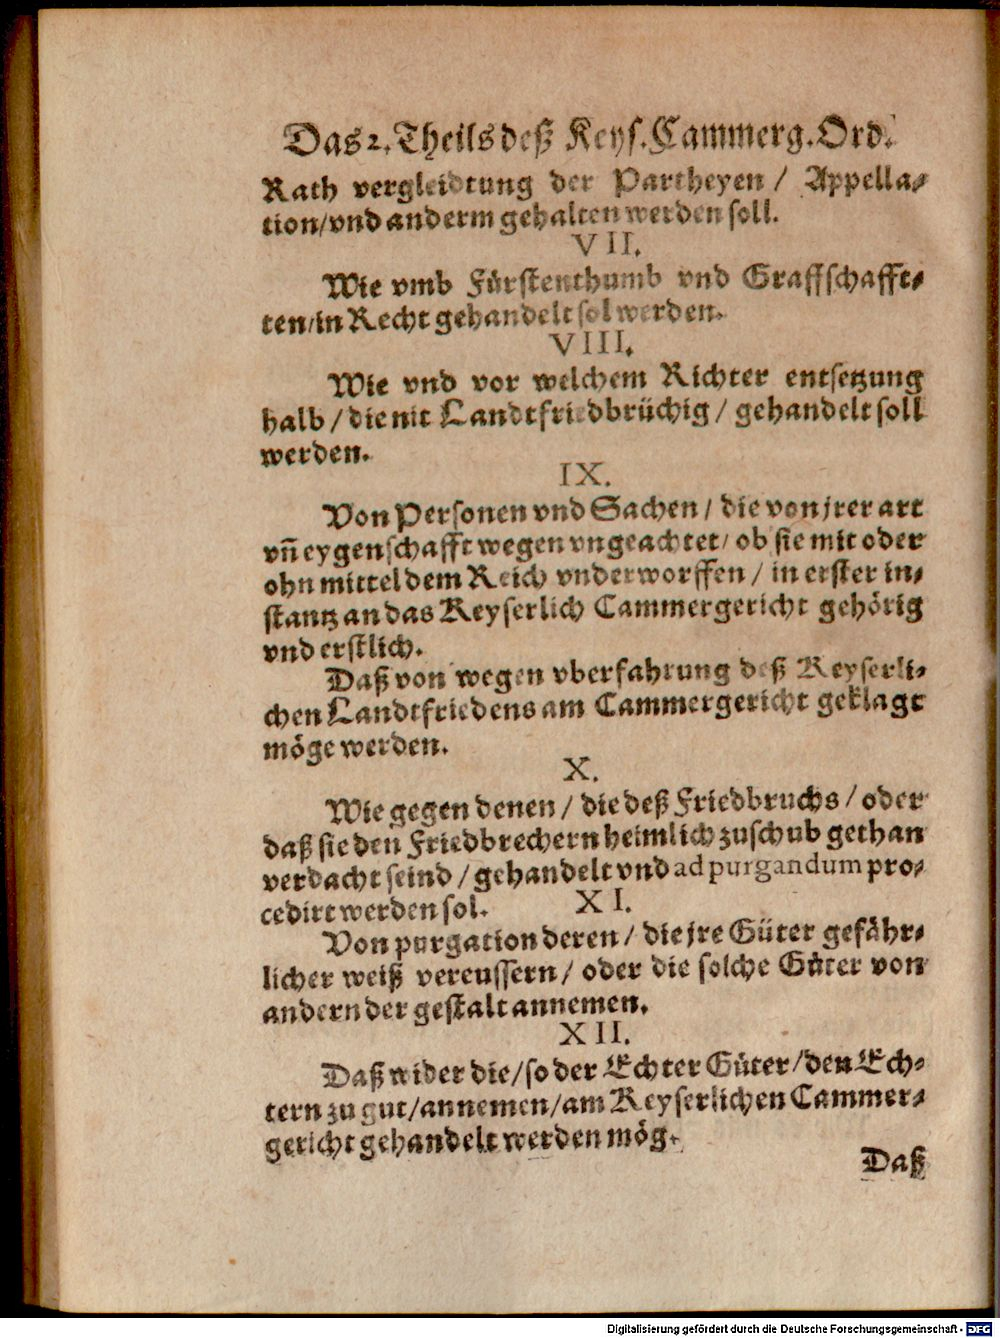 Das 2. Theils deß Keys. Cammerg. Ord.
Rath vergleidtung der Partheyen / Appella⸗
tion/ vnd anderm gehalten werden soll.
VII.
Wie vmb Fürstenthumb vnd Graffschafft⸗
ten/ in Recht gehandelt sol werden.
VIII.
Wie vnd vor welchem Richter entsetzung
halb / die nit Landtfriedbrüchig / gehandelt soll
werden.
IX.
Von Personen vnd Sachen / die von jrer art
vñ eygenschafft wegen vngeachtet/ ob sie mit oder
ohn mittel dem Reich vnderworffen / in erster in⸗
stantz an das Keyserlich Cammergericht gehörig
vnd erstlich.
Daß von wegen vberfahrung deß Keyserli⸗
chen Landtfriedens am Cammergericht geklagt
möge werden.
X.
Wie gegen denen / die deß Friedbruchs / oder
daß sie den Friedbrechern heimlich zuschub gethan
verdacht seind / gehandelt vnd ad purgandum pro⸗
cedirt werden sol.
XI.
Von purgation deren / die jre Güter gefähr⸗
licher weiß vereussern / oder die solche Güter von
andern der gestalt annemen.
XII.
Daß wider die / so der Echter Güter / den Ech⸗
tern zu gut / annemen / am Keyserlichen Cammer⸗
gericht gehandelt werden mög.
Daß
Digitalisierung gefördert durch die Deutsche Forschungsgemeinschaft - DFG